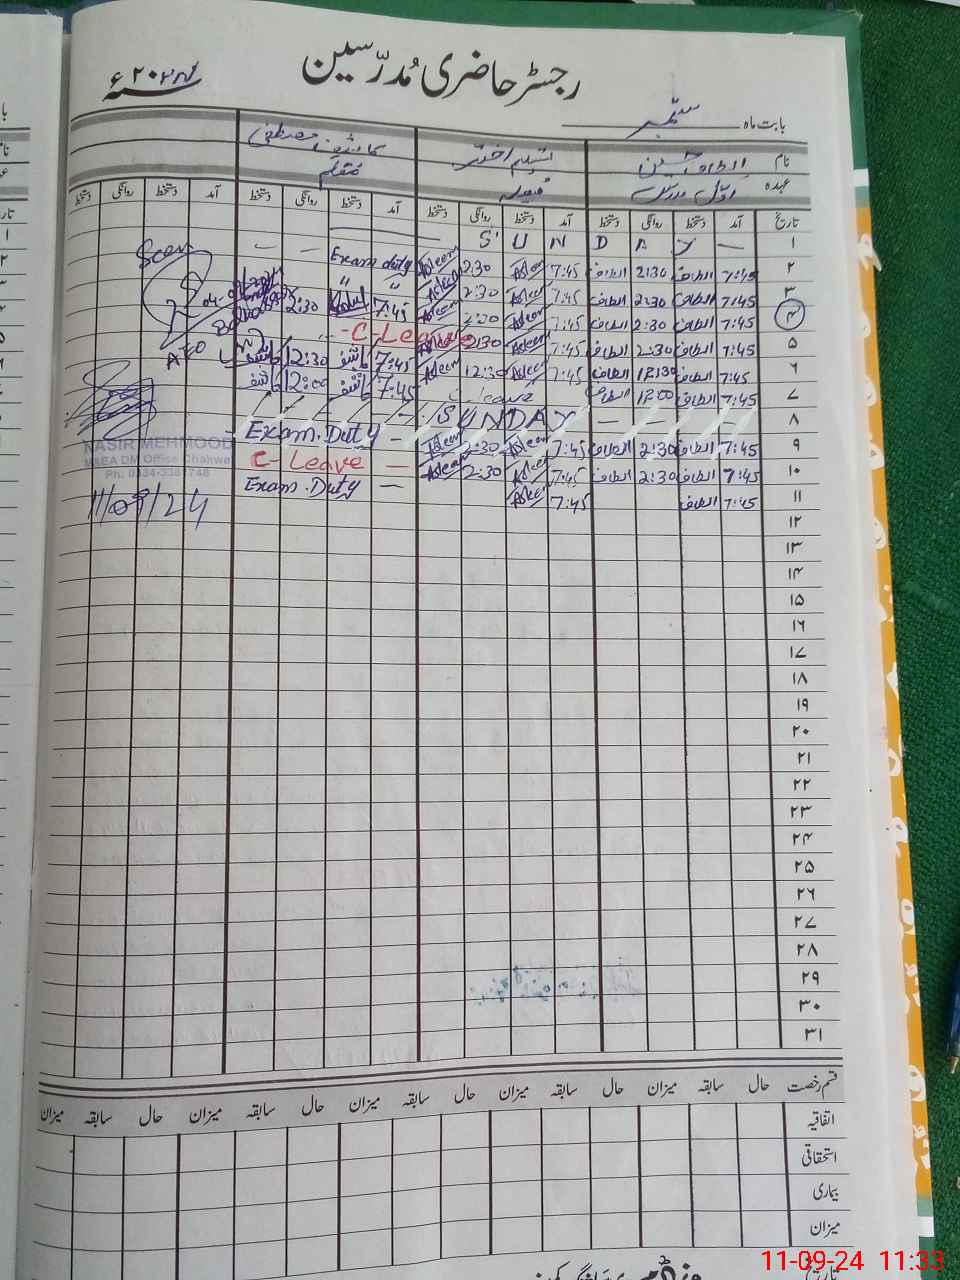 رجسٹر حاضری مدرّسین
۲۰۲۴ء
بابت ماہ ستمبر
نام الطاف حسین تسلیم اختر کاشف مصطفیٰ
عہدہ اوّل مدرس معلم
تاریخ آمد دستخط روانگی دستخط آمد دستخط روانگی دستخط آمد دستخط روانگی دستخط آمد دستخط روانگی دستخط
۱ S U N D A Y
۲ 7:45 الطاف 2:30 الطاف 7:45 Asleem 2:30 Asleem Exam duty
۳ 7:45 الطاف 2:30 الطاف 7:45 Asleem 2:30 Asleem " "
۴ 7:45 الطاف 2:30 الطاف 7:45 Asleem 2:30 Asleem 7:45 2:30
۵ 7:45 الطاف 2:30 الطاف 7:45 Asleem 2:30 Asleem C-Leave
۶ 7:45 الطاف 12:30 الطاف 7:45 Asleem 12:30 Asleem 7:45 کاشف 12:30 کاشف
۷ 7:45 الطاف 12:00 الطاف C-leave 7:45 کاشف 12:00 کاشف
۸ SUNDAY
۹ 7:45 الطاف 2:30 الطاف 7:45 Asleem 2:30 Asleem Exam. Duty
۱۰ 7:45 الطاف 2:30 الطاف 7:45 Asleem 2:30 Asleem C-Leave
۱۱ 7:45 الطاف 7:45 Asleem Exam. Duty
Seen
04-09-2024
AEO
NASIR MEHMOOD
M&EA DM Office Chakwal
11/09/24
۱۲
۱۳
۱۴
۱۵
۱۶
۱۷
۱۸
۱۹
۲۰
۲۱
۲۲
۲۳
۲۴
۲۵
۲۶
۲۷
۲۸
۲۹
۳۰
۳۱
قسم رخصت حال سابقہ میزان حال سابقہ میزان حال سابقہ میزان حال سابقہ میزان
اتفاقیہ
استحقاقی
بیماری
میزان
تاریخ
11-09-24 11:33